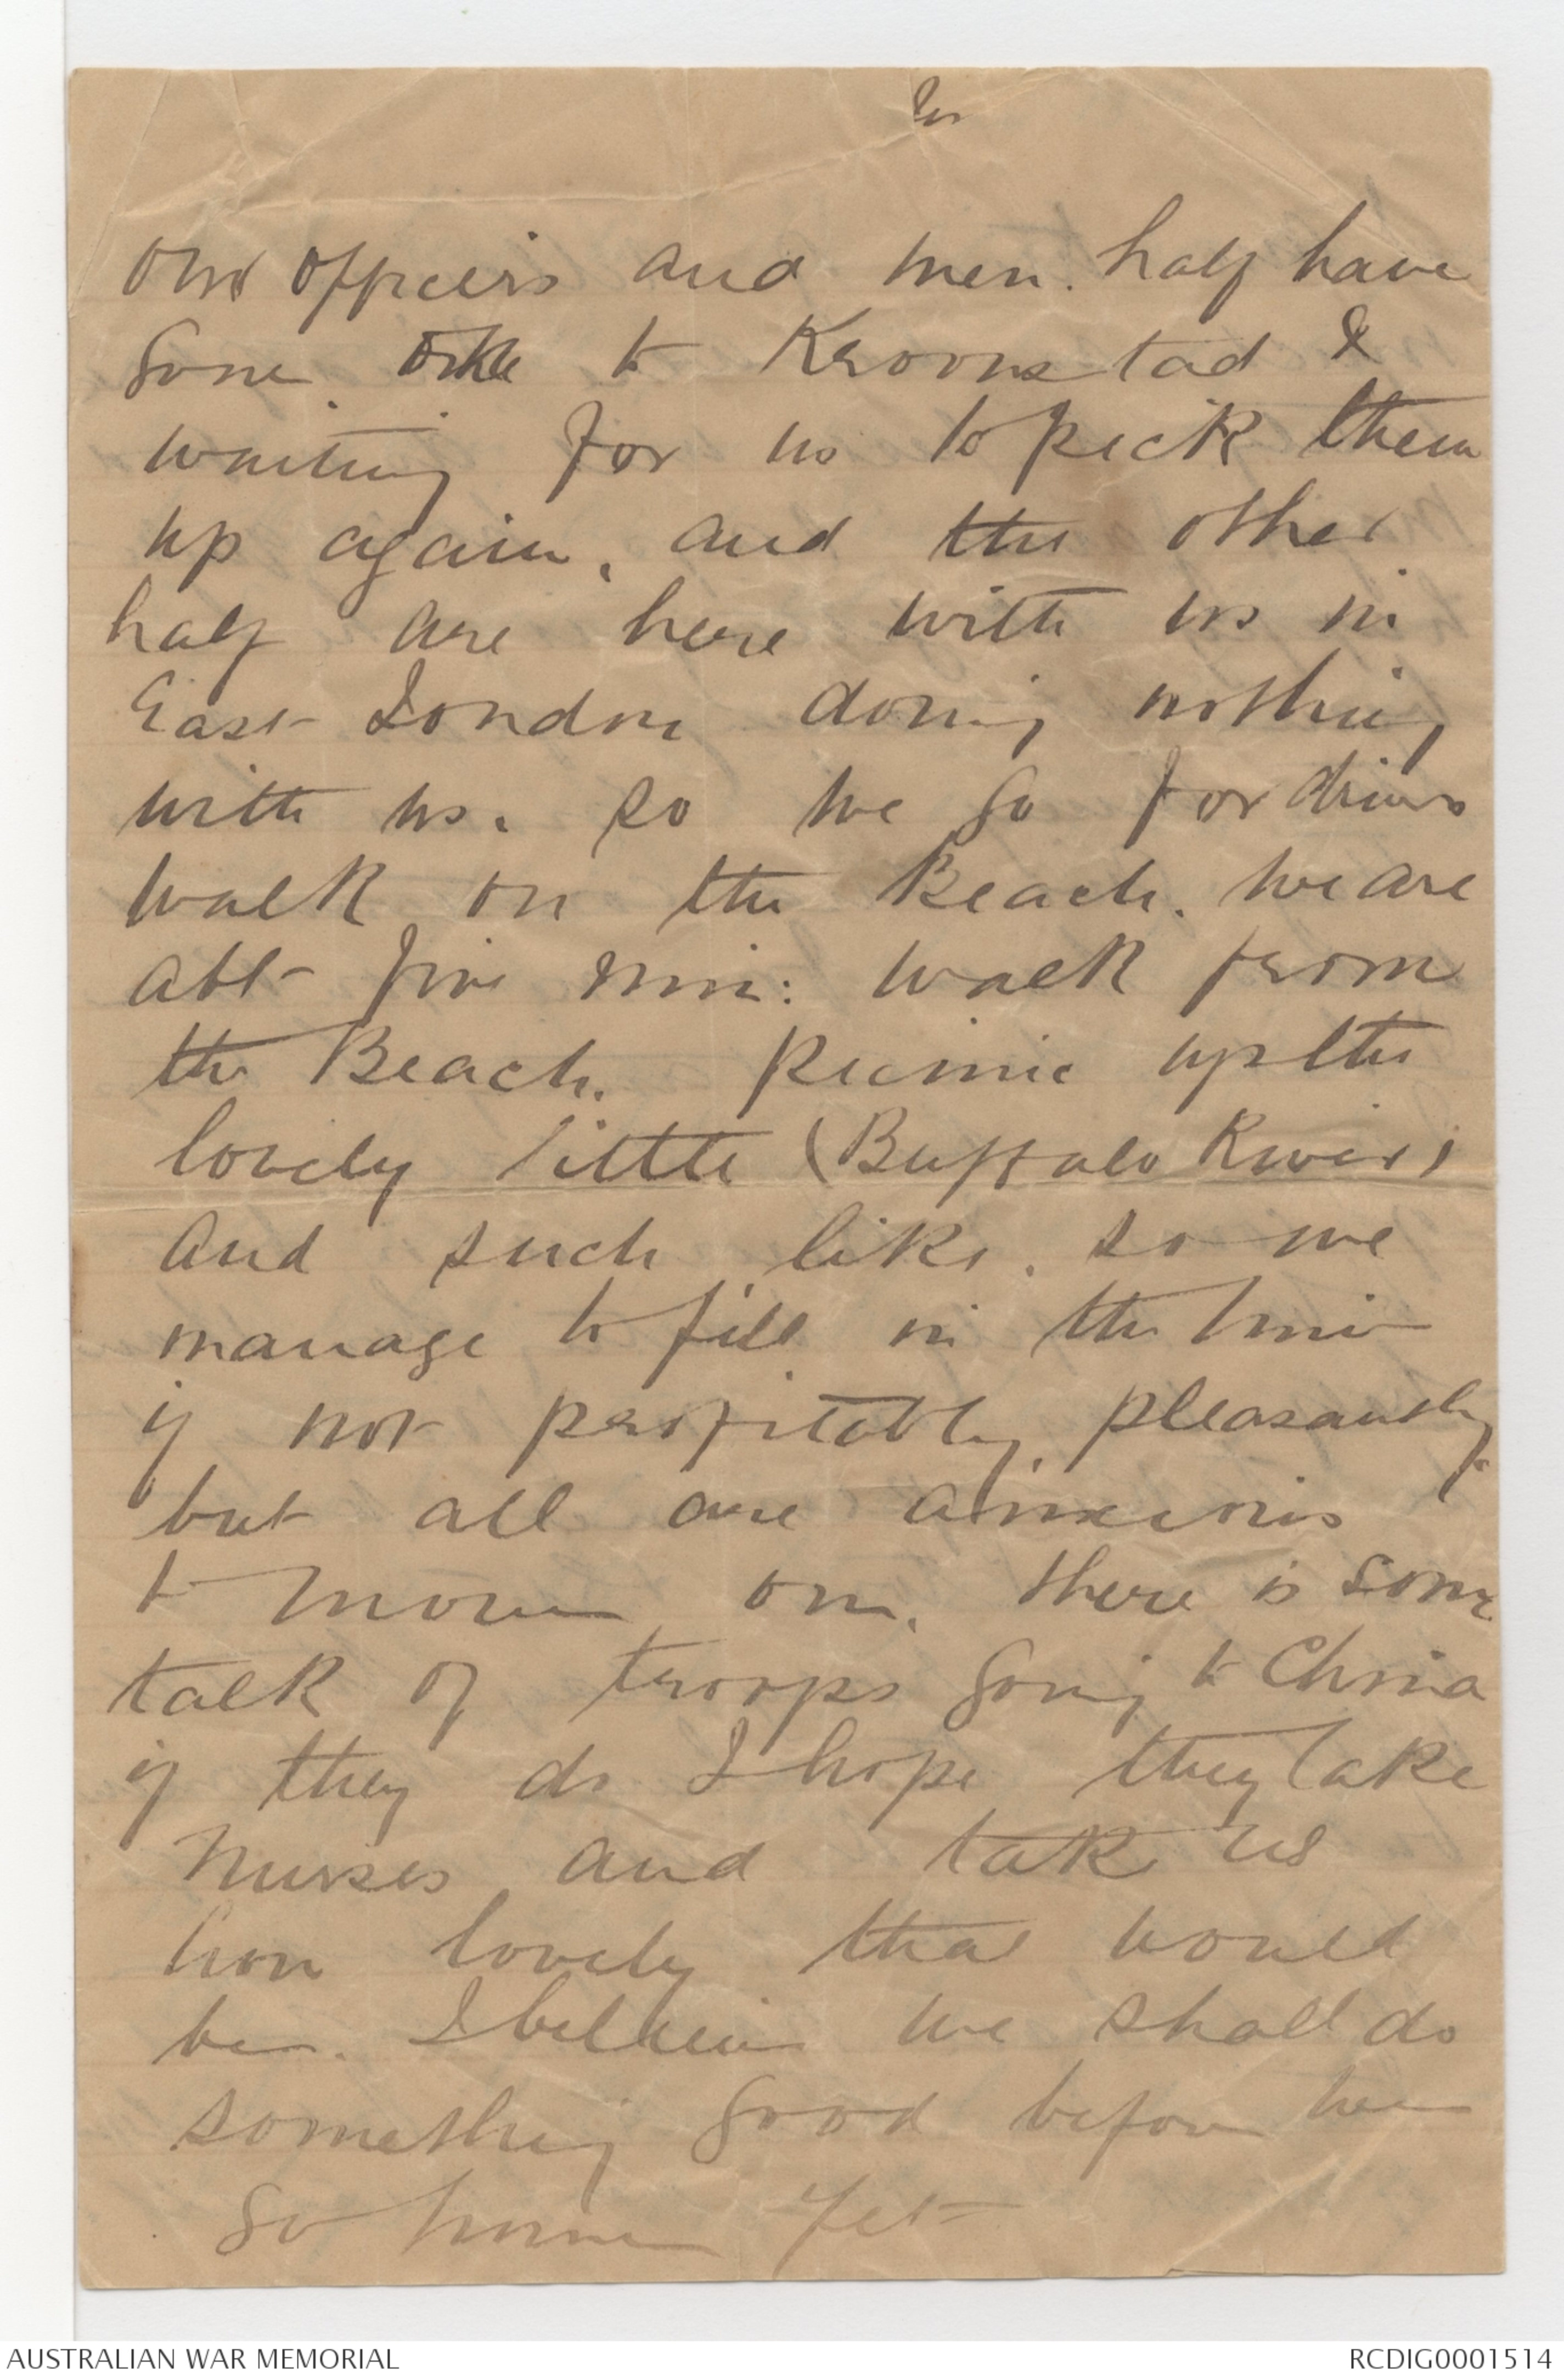 our officers and men. half have
gone to Kroonstad &
waiting for us to pick them
up again, and the other
half are here with us in
East London doing nothing
with us. so we go for drives
walk on the Beach. we are
abt five min: walk from
the Beach. Picinic up the
lovely little (Buffalo River)
and such like. so we
manage to fill in the time
if not profitably, pleasantly.
but all are anxious
to move on. there is some
talk of troops going to China
if they do I hope they take
Nurses and take us
how lovely that would
be. I believe we shall do
something good before we
go home yet
AUSTRALIAN WAR MEMORIAL
RCDIG0001514